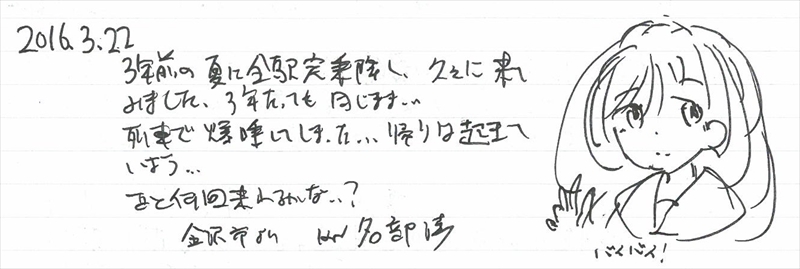 2016.3.22
3年前の夏に全駅完乗降し、久々に来て
みました、3年たっても同じまま…
列車で爆睡してしまった… 帰りは起きて
いよう…
あと何回来れるかな…?
金沢市より HN 名部清
バイバイ!